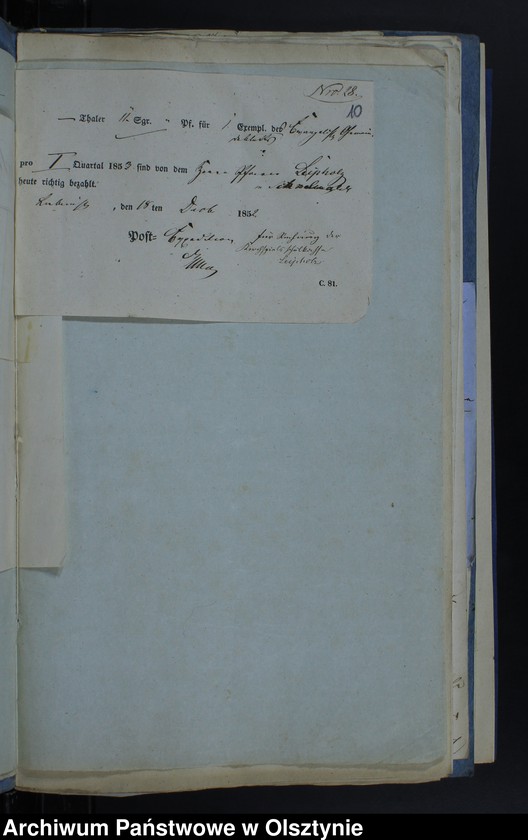 Nro 28.
10
— Thaler 11 Sgr. " Pf. für 1 Exempl. des Evangelisch. Gemein
deblattes
pro I Quartal 1853 sind von dem Herrn Pfarrer Leipholz
heute richtig bezahlt.
, den 18 ten Decb 1852
Post= Expedition für Rechnung der
Kirchspiels Schulkasse
Leipholz
C. 81.
Archiwum Państwowe w Olsztynie